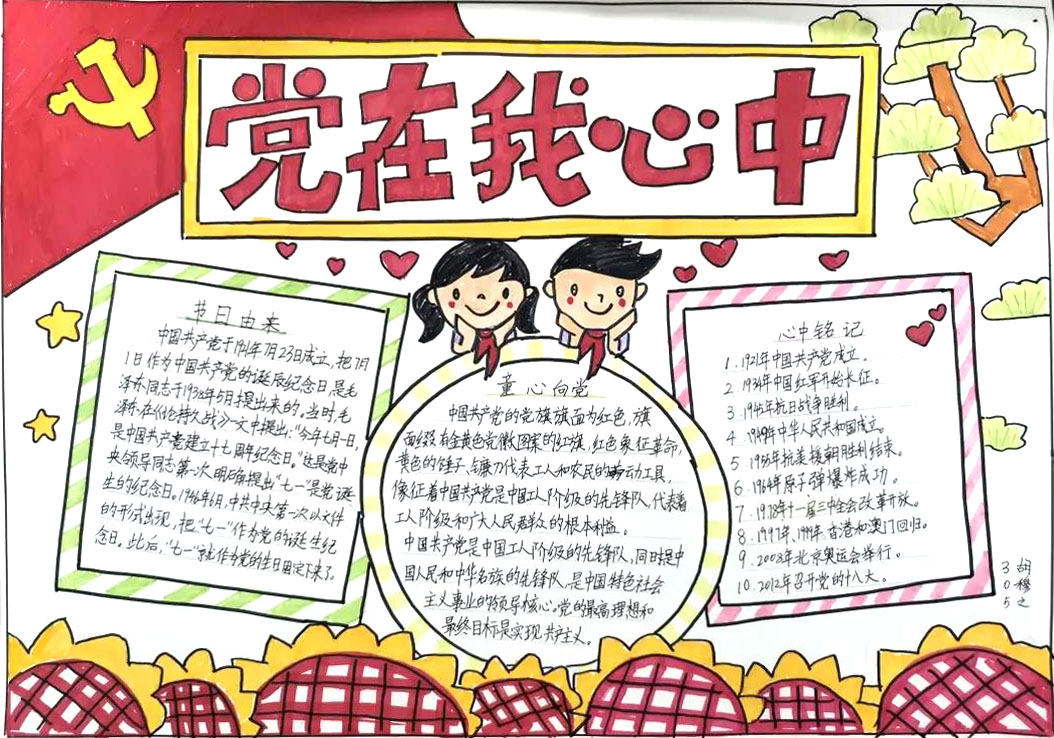 党在我心中
节日由来
中国共产党于1921年7月23日成立,把7月
1日作为中国共产党的诞辰纪念日是毛
泽东同志于1938年5月提出来的。当时毛
泽东在《论持久战》一文中提出:“今年七月一日,
是中国共产党建立十七周年纪念日。”这是党中
央领导同志第一次明确提出“七一”是党诞
生的纪念日。1941年6月,中共中央第一次以文件
的形式出现,把“七一”作为党的诞生纪
念日。此后,“七一”就作为党的生日固定下来了。
童心向党
中国共产党的党旗旗面为红色,旗
面缀有金黄色党徽图案的红旗,红色象征革命,
黄色的锤子、镰刀代表工人和农民的劳动工具,
像征着中国共产党是中国工人阶级的先锋队,代表着
工人阶级和广大人民群众的根本利益。
中国共产党是中国工人阶级的先锋队,同时是中
国人民和中华名族的先锋队,是中国特色社会
主义事业的领导核心。党的最高理想和
最终目标是实现共产主义。
心中铭记
1.1921年中国共产党成立。
2 1934年中国红军开始长征。
3.1945年抗日战争胜利。
4.1949年中华人民共和国成立。
5 1953年抗美援朝胜利结束。
6.1964年原子弹爆炸成功。
7.1978年十一届三中全会改革开放。
8.1997年、1999年香港和澳门回归。
9.2008年北京奥运会举行。
10.2012年召开党的十八大。
305
胡穆之